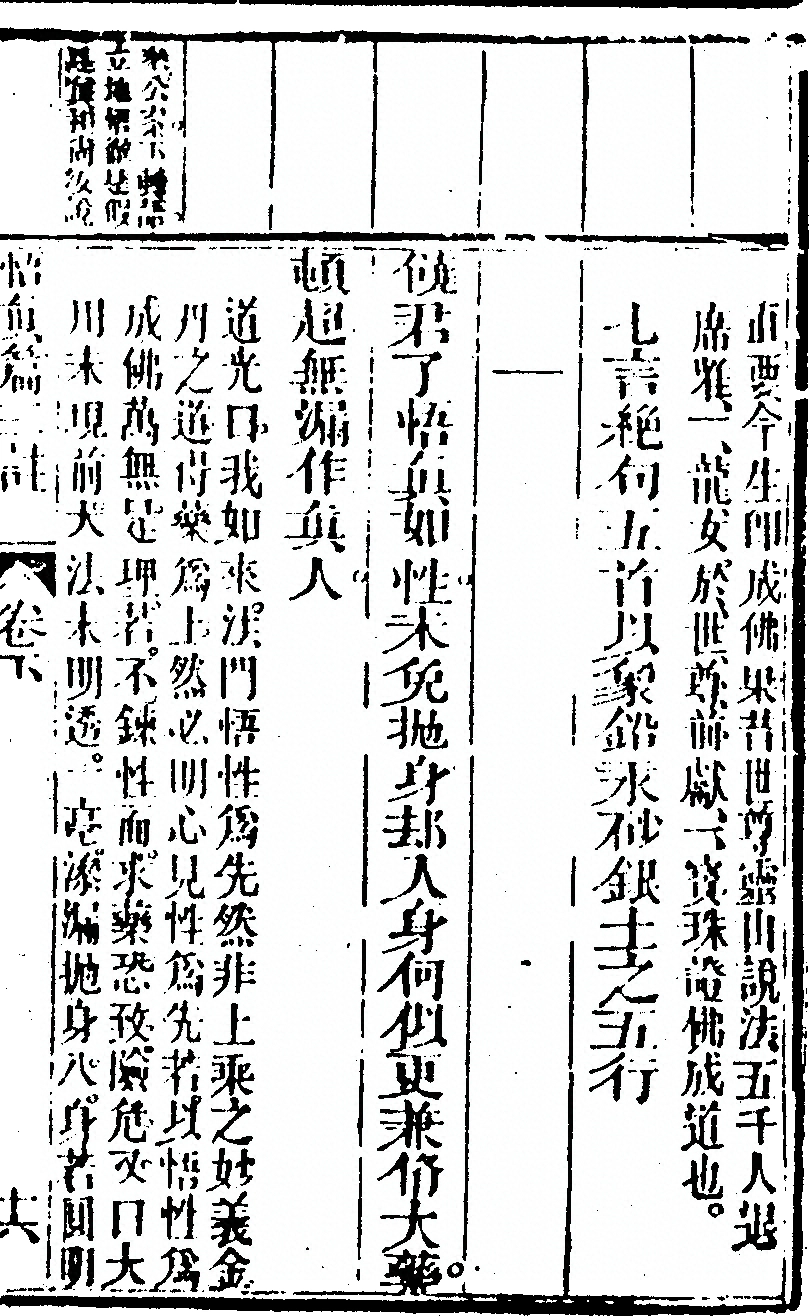 直要今生即成佛果昔世尊靈山說法五千人退
席雅一龍女於世尊前獻一寶珠證佛成道也。
七言絕句五首以象鉛汞砂銀土之五行
一
饒君了悟真如性未免拋身却入身何似更兼脩大藥。
頓超無漏作真人
道光曰我如來法門悟性爲先然非上乘之妙義金
丹之道得藥爲上然必明心見性爲先若以悟性爲
成佛萬無是理若不鍊性而求藥恐致險危又曰大
用未現前大法未明透。一毫滲漏拋身入身若圓明
公案下轉語
立地悟徹是假
是真和尚汝說
悟真篇三註
卷下
十六